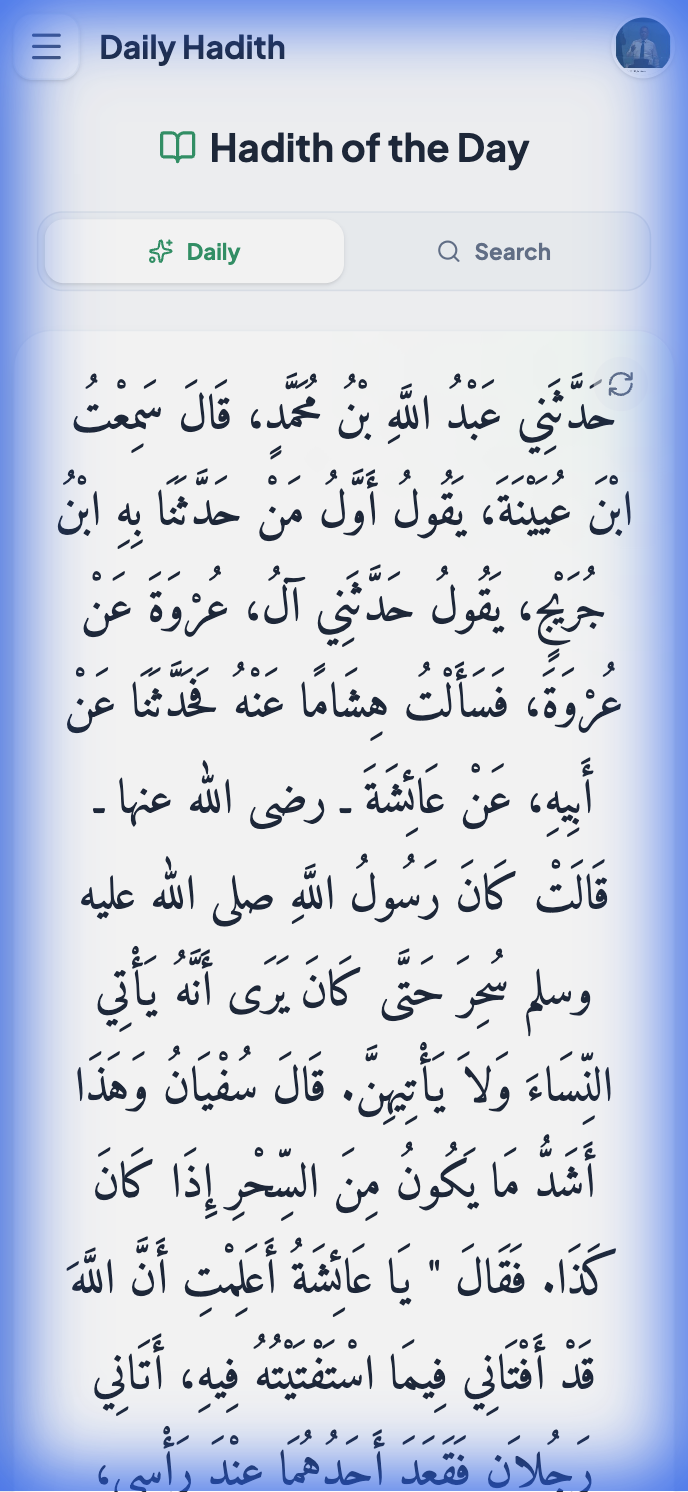 Daily Hadith
Hadith of the Day
Daily
Search
حَدَّثَنِي عَبْدُ اللَّهِ بْنُ مُحَمَّدٍ، قَالَ سَمِعْتُ
ابْنَ عُيَيْنَةَ، يَقُولُ أَوَّلُ مَنْ حَدَّثَنَا بِهِ ابْنُ
جُرَيْجٍ، يَقُولُ حَدَّثَنِي آلُ، عُرْوَةَ عَنْ
عُرْوَةَ، فَسَأَلْتُ هِشَامًا عَنْهُ فَحَدَّثَنَا عَنْ
أَبِيهِ، عَنْ عَائِشَةَ ـ رضى الله عنها ـ
قَالَتْ كَانَ رَسُولُ اللَّهِ صلى الله عليه
وسلم سُحِرَ حَتَّى كَانَ يَرَى أَنَّهُ يَأْتِي
النِّسَاءَ وَلاَ يَأْتِيهِنَّ. قَالَ سُفْيَانُ وَهَذَا
أَشَدُّ مَا يَكُونُ مِنَ السِّحْرِ إِذَا كَانَ
كَذَا. فَقَالَ " يَا عَائِشَةُ أَعَلِمْتِ أَنَّ اللَّهَ
قَدْ أَفْتَانِي فِيمَا اسْتَفْتَيْتُهُ فِيهِ، أَتَانِي
رَجُلاَنِ فَقَعَدَ أَحَدُهُمَا عِنْدَ رَأْسِي،